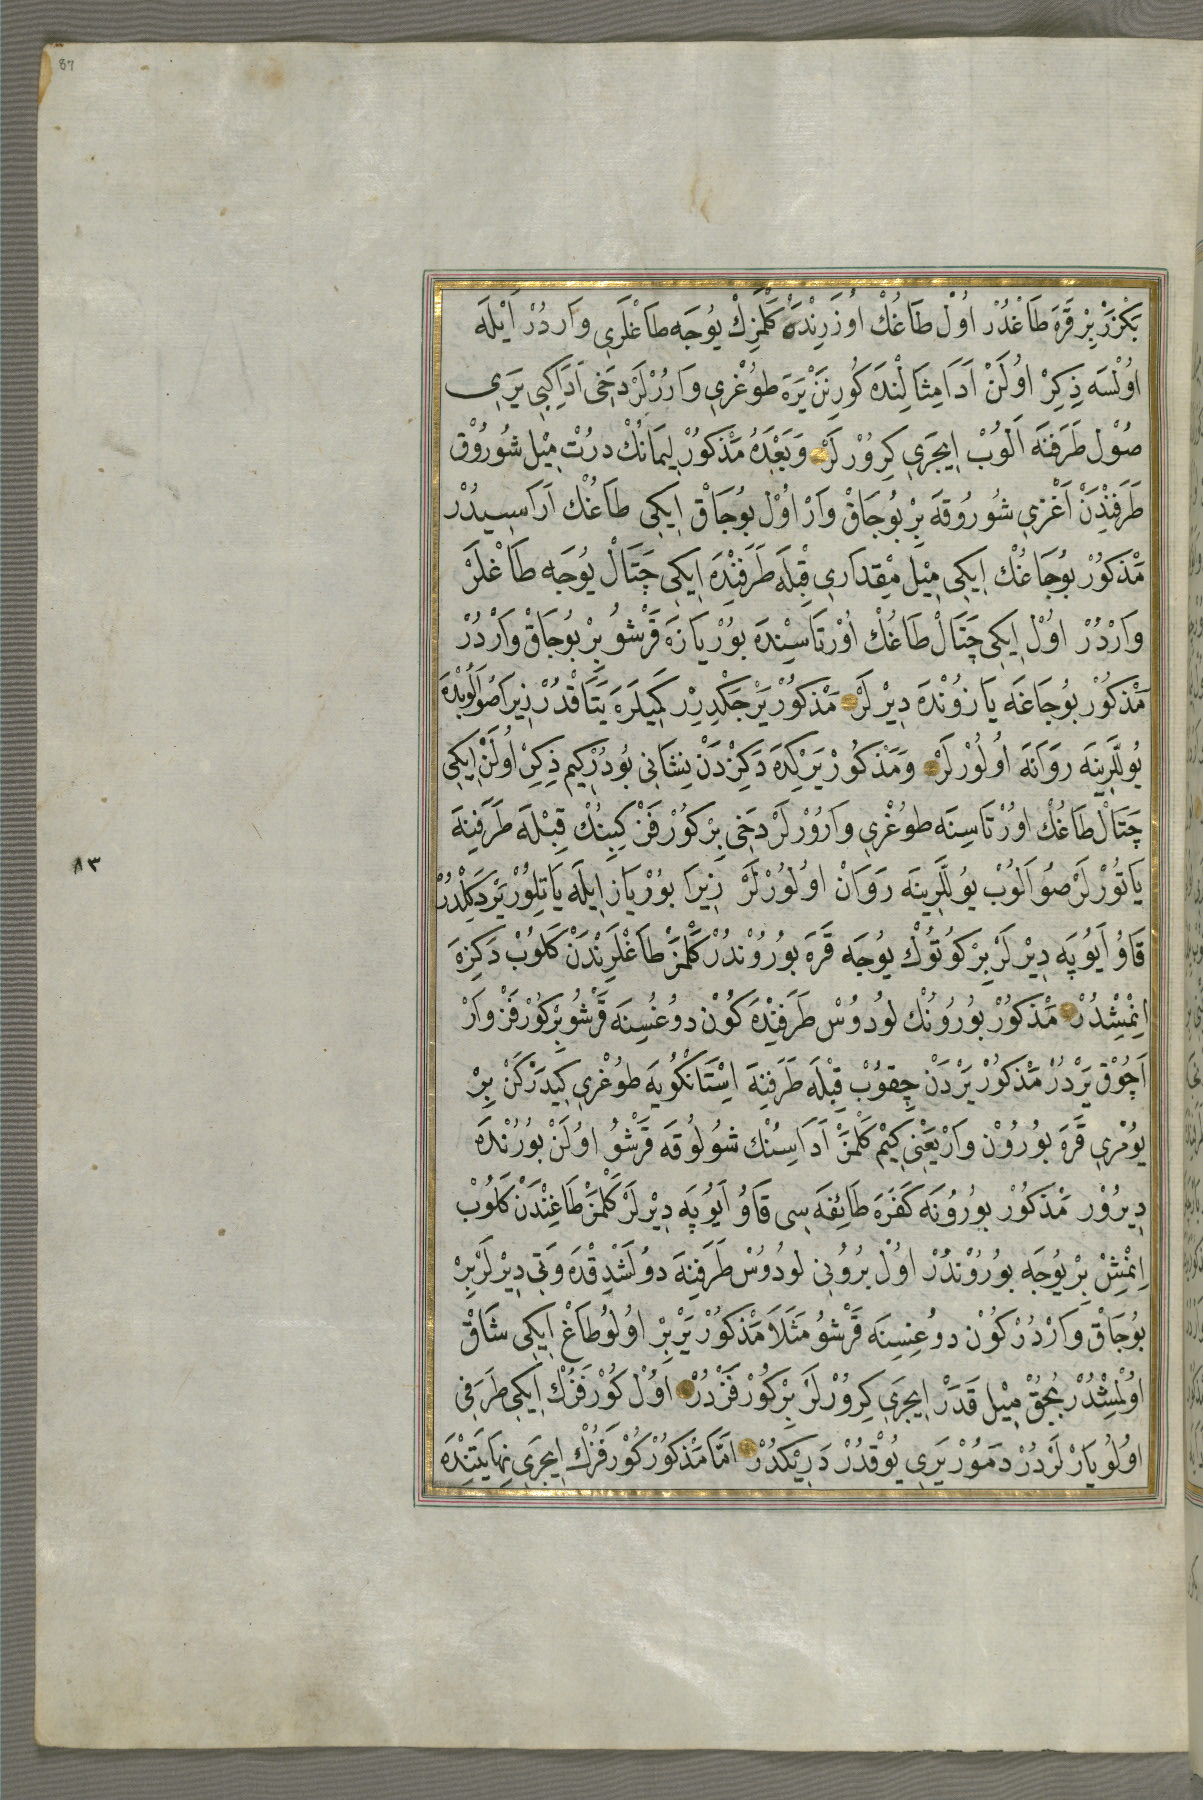 87
بَكْزَرْ بِرْ قَرَه طَاغْدُرْ اُوْلْ طَاغُكْ اُوزَرِنْدَه كَلْمَزِكْ يُوجَه طَاغْلَرِي وَارْدُرْ اَيْلَه
اوُلْسَه ذِكِرْ اوُلَنْ اَدَا مِثَالِنْدَه كُورِنَنْ يَرَه طوُغْرِي وَارُرْلَرْ دَخِى اَدَايِي يَرِى
صُوْل طَرَفِنَه اَلُوبْ اِيچَرِي كِرُورْلَرْ وَبَعْدَهُ مَذْكوُرْ لِيمَانُكْ دُرْتْ مِيْل شُورُوْق
طَرَفِنْدَنْ اَغْزِي شُورُوقَه بِرْ بُوجَاقْ وَارْ اوُلْ بوُجَاقْ اِيكِي طَاغُكْ اَرَاسِيدُرْ
مَذْكوُرْ بوُجَاغُكْ اِيكِى مِيْل مِقْدَارِي قِبْلَه طَرَفِنْدَه اِيكِى چَتَالْ يُوجَه طَاغْلَرْ
وَارْدُرْ اوُلْ اِيكِى چَتَالْ طَاغُكْ اوُرْتَاسِنْدَه بوُرْيَازَه قَرْشوُ بِرْ بوُجَاقْ وَارْدُرْ
مَذْكوُرْ بوُجَاغَه يَازوُنْدَه دِيرْلَرْ مَذْكوُرْ يَرْ جَكْدِرِرْ كَمِيلَرَه يَتَاقْدُرْ زِيرَا صُو اَلُوبْدَه
يوُللَّرِينَه رَوَانَه اُولُورْلَرْ وَمَذْكُورْ يَرِكَه دَكِزْدَنْ نِشَانِي بُودُرْكِيم ذِكِرْ اوُلَنْ اِيكِى
چَتَالْ طَاغُكْ اوُرْتَاسِنَه طوُغْرِي وَارُورْلَرْ دَخِى بِرْ كوُرْفَزْ كِبِينُكْ قِبْلَه طَرَفِنَه
يَاتُورْلَرْ صُو اَلُوبْ يوُللَّرِينَه رَوَانْ اوُلوُرْلَرْ زِيرَا بوُرْيَاز اِيلَه يَاتِلوُرْ يَرْ دَكِلْدُرْ
قَاوُ اَيُوپَه دِيرْلَرْ بِرْ كوُتوُكْ يوُجَه قَرَه بوُرُوْنْدُرْ كَلْمَزْ طَاغْلَرِنْدَنْ كَلوُبْ دَكِزَه
اِنْمِشْدُرْ مَذْكوُرْ بوُرُونُكْ لوُدوُسْ طَرَفِنْدَه كوُنْ دوُغُسِنَه قَرْشوُ بِرْ كوُرْفَزْ وَارْ
اَچُوْق يَرْدُرْ مَذْكوُرْ يَرْدَنْ چِقوُبْ قِبْلَه طَرَفِنَه اِسْتَانْكُويَه طوُغْرِي كِيدَرْكَنْ بِرْ
يوُمْرِي قَرَه بوُرُوْنْ وَارْ يَعْنِي كِيمْ كَلْمَزْ اَدَاسِنُكْ شوُلوُقَه قَرْشوُ اوُلَنْ بوُرُنْدَه
دِيرُوْر مَذْكوُرْ بوُرُونَه كَفَرَه طَائِفَه سِى قَاوُ اَيُوپَه دِيرْلَرْ كَلْمَزْ طَاغِنْدَنْ كَلوُبْ
اِنْمِشْ بِرْ يوُجَه بوُرُوْنْدُرْ اوُلْ بُرُونِى لوُدوُسْ طَرَفِنَه دوُلَشْدِقْدَه وَتِي دِيرْلَرْ بِرْ
بوُجَاقْ وَارْدُرْ كوُنْ دوُغِسِنَه قَرْشوُ مَثَلَا مَذْكوُرْ يَرْ بِرْ اوُلوُ طَاغْ اِيكِي شَاقْ
اوُلْمِشْدُرْ بُچُقْ مِيْل قَدَرْ اِيچَرِي كِرُورْلَرْ بِرْ كوُرْفَزْدُرْ اوُلْ كوُرْفَزُكْ اِيكِي طَرَفِى
اوُلُو يَارْلَرْدُرْ دَمُورْ يَرِي يوُقْدُرْ دَرِيكْدُرْ اَمَّا مَذْكوُرْ كوُرْفَزُكْ اِيچَرِي نِهَايَتِنْدَه
٨٣